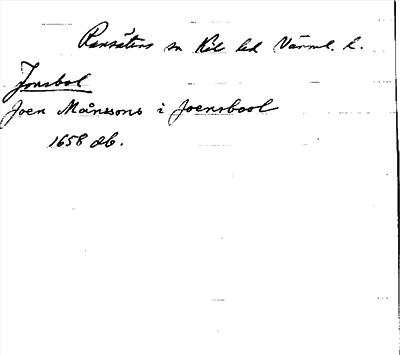 Ransäters sn Kils hd Värml. l.
Jonsbol
Joen Månssons i Joensbool
1658 db.